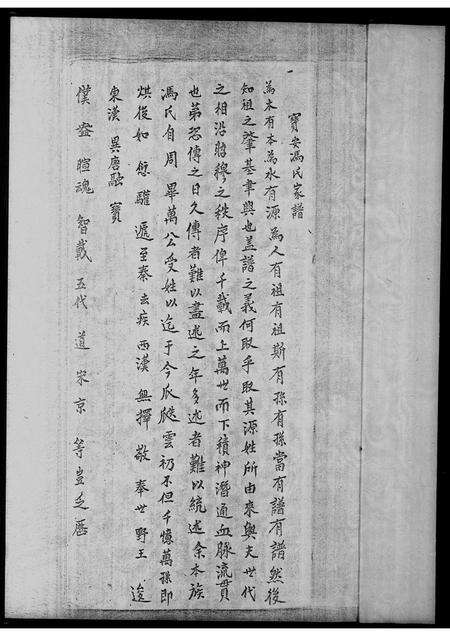 寶安馮氏家譜
為木有本為水有源為人有祖有祖斯有孫有孫當有譜有譜然後
知祖之肇基聿興也蓋譜之義何取乎取其源姓所由來與夫世代
之相沿昭穆之秩序俾千載而上萬世而下積神潛通血脉流貫
也第恐傳之日久傳者難以盡述之年多述者難以統述余本族
馮氏自周 畢萬公受姓以迄于今瓜瓞雲初不但千億萬孫即
後如 驩 遞至秦去疾西漢 無擇 敬 奉世野王 逡
東漢 異唐融 寶
僕 盎暄魂 智戴 五代 道 宋京 等豈乏歷